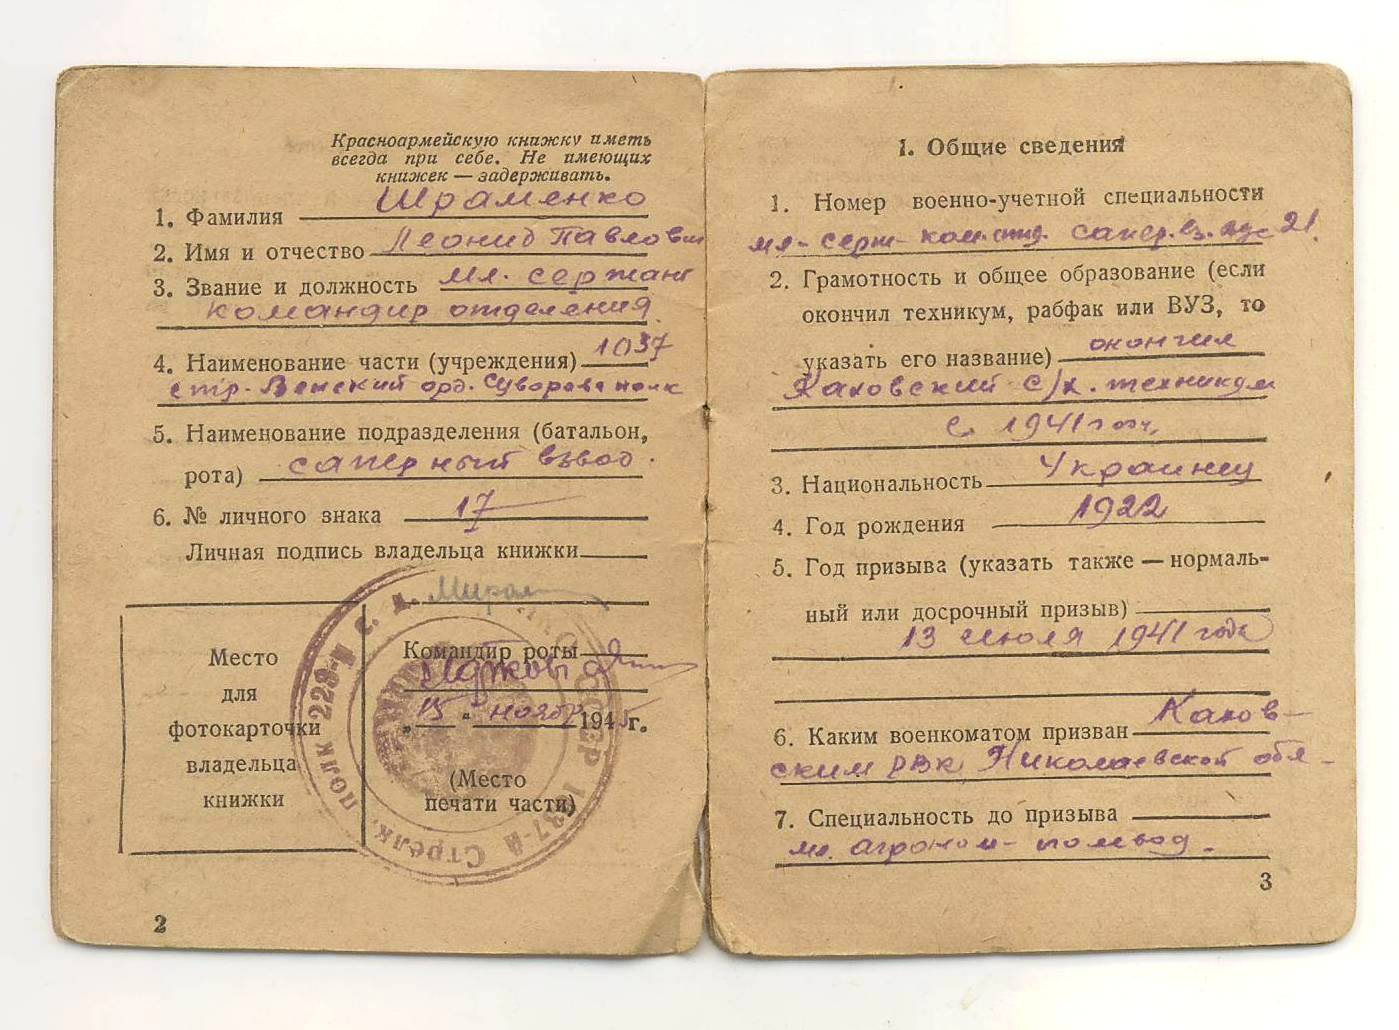 Красноармейскую книжку иметь
всегда при себе. Не имеющих
книжек — задерживать.
1. Фамилия Шраменко
2. Имя и отчество Леонид Павлович
3. Звание и должность мл. сержант
командир отделения
4. Наименование части (учреждения) 1037
стр. Венский орд. Суворова полк
5. Наименование подразделения (батальон,
рота) саперный взвод.
6. № личного знака 17
Личная подпись владельца книжки
Место
для
фотокарточки
владельца
книжки
Командир роты
„15“ ноябр 1945г.
(Место
печати части)
1037-й Стрелк. полк 228-й с. д.
2
1. Общие сведения
1. Номер военно-учетной специальности
мл. серж. ком. отд. сапер. вз. 21.
2. Грамотность и общее образование (если
окончил техникум, рабфак или ВУЗ, то
указать его название) окончил
Каховский с/х. техникум
с 1941
3. Национальность Украинец
4. Год рождения 1922
5. Год призыва (указать также — нормаль-
ный или досрочный призыв)
13 июля 1941 года
6. Каким военкоматом призван Кахов-
ским РВК Николаевской обл-
7. Специальность до призыва
мл. агроном- полевод.
3